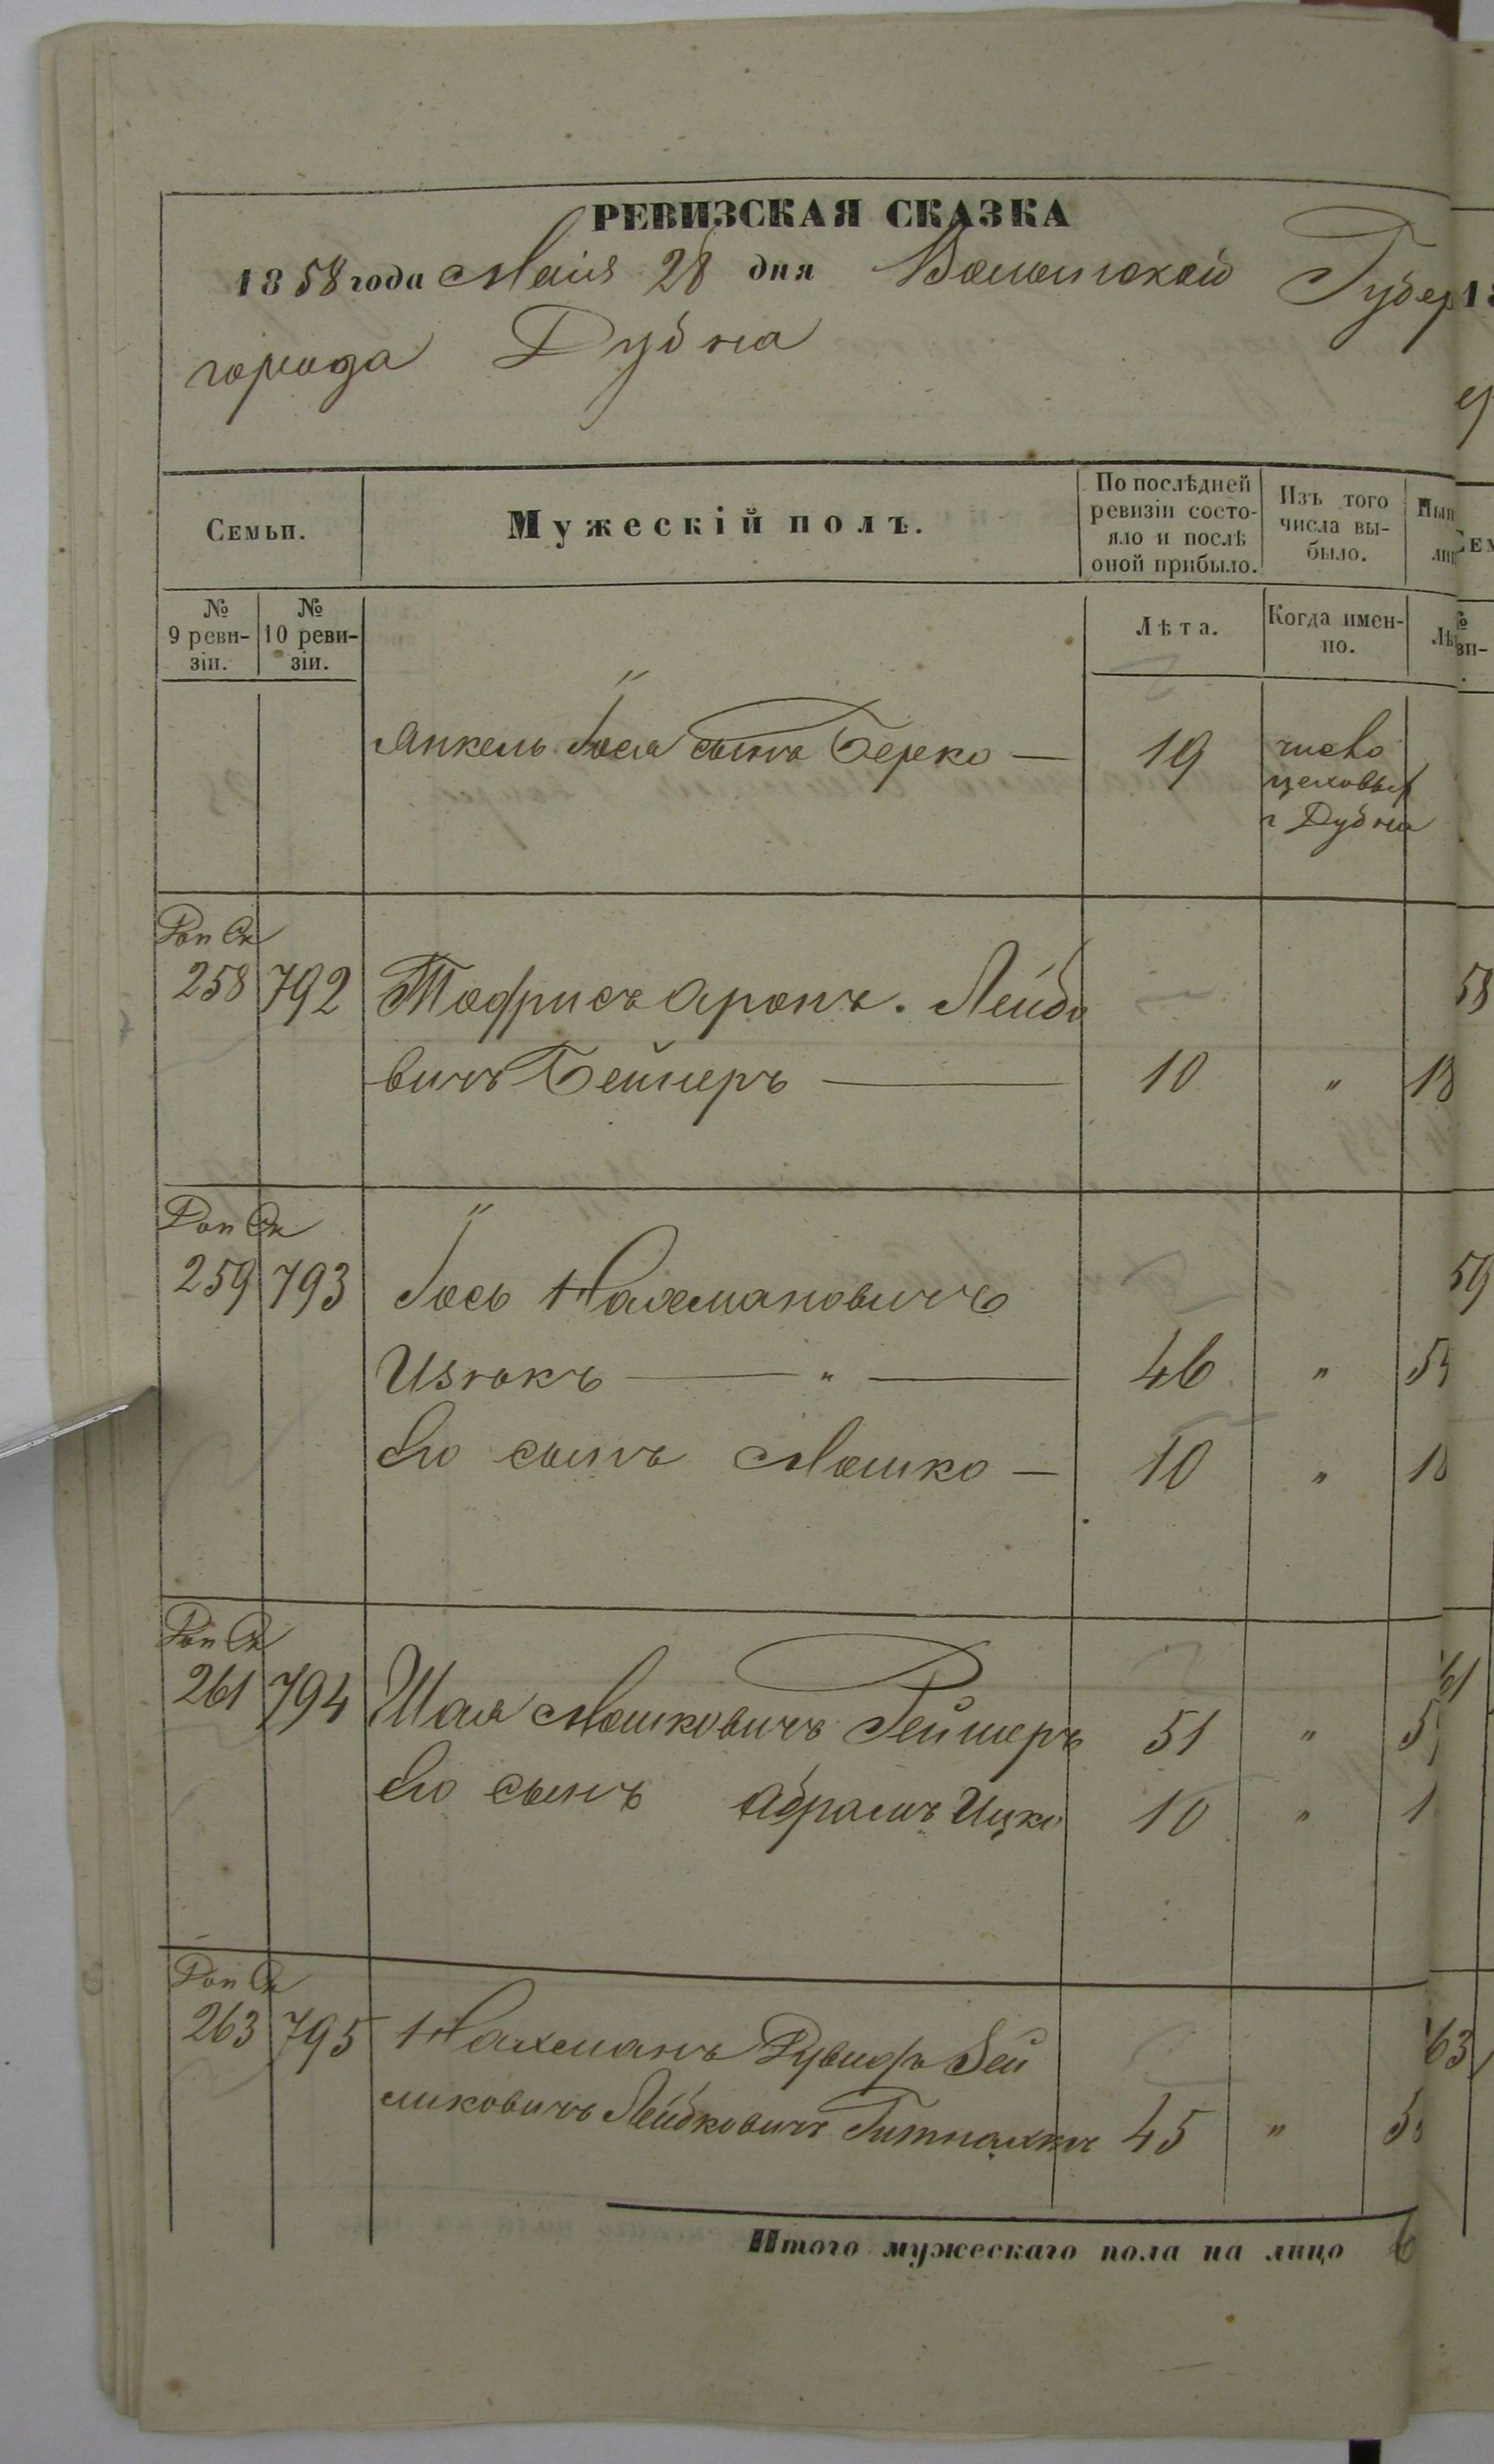 РЕВИЗСКАЯ СКАЗКА
1858 года Маія 28 дня Волынской Губер
города Дубна
Семьи.
Мужескій полъ.
По послѣдней ревизіи состо-
яло и послѣ
оной прибыло.
Изъ того
числа вы-
было.
№
9 реви-
зіи.
№
10 реви-
зіи.
Лѣта.
Когда имен-
но.
Янкель Іося сынъ Берко — 19 число
цеховых
г Дубна
258 792 Тофрисъ Аронъ. Лейбо
вичъ Беймеръ — 10 " 18
259 793 Іось Нахмановичъ
Изгокъ — " — 46 "
Его сынъ Мошко — 10 "
261 794 Шая Мошковичъ Реймеръ 51 "
Его сынъ Абрамъ Ицко 10 "
263 795 Нахманъ Рувинъ Зей
ликовичъ Лейбковичъ 45 "
Итого мужескаго пола на лицо 6